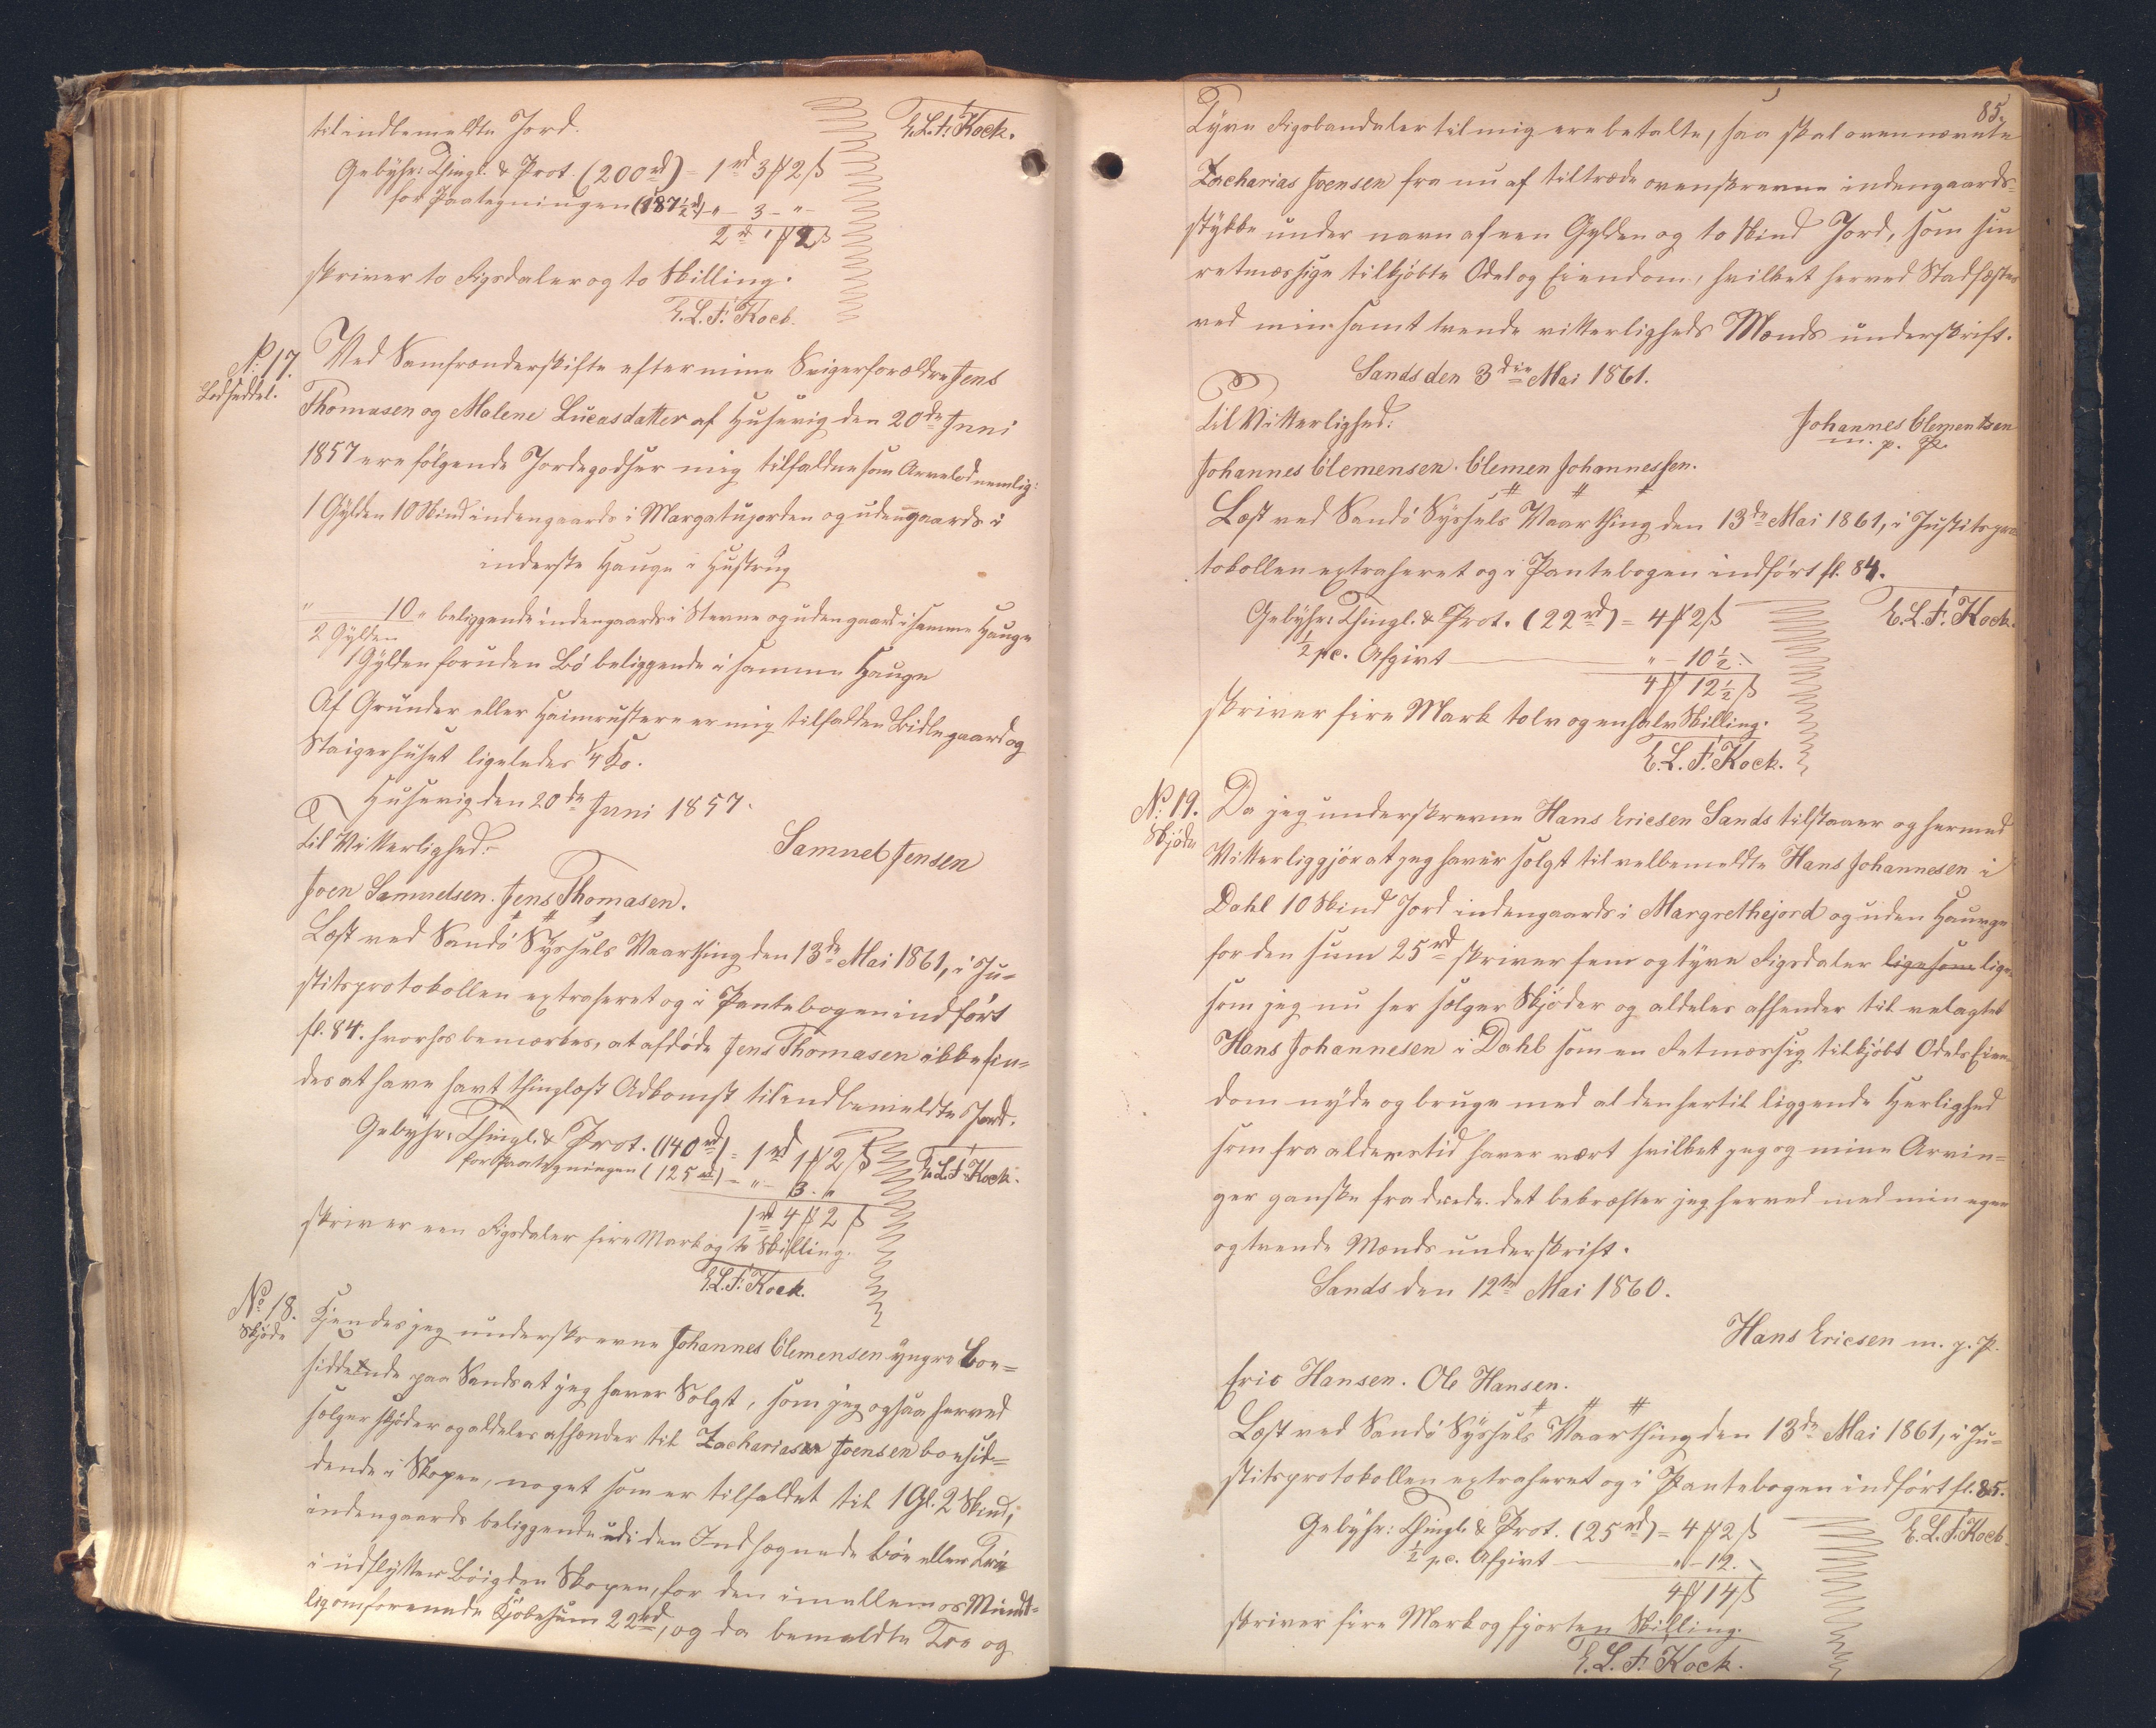 til indbemeldte Jord.
E.L.F. Kock.
Gebyhr: Thingl. & Prot. (200 rd) = 1 rd 3 ꝟ 2 ß
for Paategningen (187½ rd) - " - 3 - " -
2 rd " ꝟ 2 ß
skriver to Rigsdaler og to Skilling.
E.L.F. Kock.
No. 17.
Lodseddel.
Ved Samfrænderskifte efter mine Svigerforældre Jens
Thomasen og Malene Lucasdatter af Husevig den 20de Juni
1857 ere følgende Jordegodser mig tilfaldne som Arvelod nemlig:
1 Gylden 10 Skind indengaards i Margatujorden og udengaards i
inderste Hauge i Hustrug
" 10 " beliggende indengaards i Stevne og udengaards i samme Hauge
2 Gylden
1 Gylden foruden Bö beliggende i samme Hauge
Af Grunder eller Heimrustere er mig tilfalden Bidlegaard og
Staigerhuset ligeledes ¼ Ko.
Husevig den 20de Juni 1857.
Til Vitterlighed:
Samuel Jensen
Joen Samuelsen. Jens Thomasen.
Læst ved Sandö Syssels Vaarthing den 13de Mai 1861, i Ju-
stitsprotokollen extraheret og i Pantebogen indført
fl. 84. hvorhos bemærkes, at afdöde Jens Thomasen ikke fin-
des at have havt thinglæst Adkomst til indbemeldte Jord.
Gebyhr: Thingl. & Prot. (140 rd) = 1 rd 1 ꝟ 2 ß
E.L.F. Kock.
for Paategningen (125 rd) - " - 3. "
1 rd 4 ꝟ 2 ß
skriver een Rigsdaler fire Mark og to Skilling.
E.L.F. Kock.
No. 18.
Skjöde
Kjendes jeg underskrevne Johannes Clemensen yngre boe-
siddende paa Sands at jeg haver Solgt, som jeg ogsaa herved
sælger skjöder og aldeles afhænder til Zacharias Joensen boesid-
dende i Skopen, noget som er tilfaldet til 1 Gl. 2 Skind,
indengaards beliggende udi den Indhægnede böe eller Træ
i udflytter Böigden Skopen, for den imellem os Mundt-
lig omforenede Kjöbesum 22 rd, og da bemeldte Toe og
85.
Tyve Rigsbankdaler til mig ere betalte, saa skal ovennævnte
Zacharias Joensen fra nu af tiltræde ovenskrevne indengaards-
stykke under navn af een Gylden og to Skind Jord, som sin
retmæssige tilkjöbte Odel og Eiendom, hvilket herved Stadfæstes
ved min samt tvende vitterligheds Mænds underskrift.
Sands den 3die Mai 1861.
Til Vitterlighed:
Johannes Clementsen
m. p. P.
Johannes Clemensen. Clemen Johannessen.
Læst ved Sandö Syssels Vaarthing den 13de Mai 1861, i Justitspro-
tokollen extraheret og i Pantebogen indført fl. 84.
Gebyhr: Thingl. & Prot. (22 rd) = 4 ꝟ 2 ß
E.L.F. Kock.
½ pc. Afgivt " - 10½
4 ꝟ 12½ ß
skriver fire Mark tolv og en halv Skilling.
E.L.F. Kock.
No. 19.
Skjöde
Da jeg underskrevne Hans Ericsen Sands tilstaaer og hermed
Vitterliggjör at jeg haver solgt til velbemeldte Hans Johannesen i
Dahl 10 Skind Jord indengaards i Margrethejord og uden Hauge
for den sum 25 rd skriver fem og tyve Rigsdaler ligesom lige
som jeg nu her sælger Skjöder og aldeles afhender til velagtet
Hans Johannesen i Dahl som en Retmæssig tilkjöbt Odels Eien-
dom nyde og bruge med al den hertil liggende Herlighed
som fra alderstid haver vært hvilket jeg og mine Arvin-
ger ganske fraværde. det bekræfter jeg herved med min egen
og tvende Mænds underskrift.
Sands den 12te Mai 1860.
Hans Ericsen m. p. P.
Eric Hansen. Ole Hansen.
Læst ved Sandö Syssels Vaarthing den 13de Mai 1861, i Ju-
stitsprotokollen extraheret og i Pantebogen indført fl. 85.
Gebyhr: Thingl. & Prot. (25 rd) = 4 ꝟ 2 ß
E.L.F. Kock.
½ pc. Afgivt " - 12.
4 ꝟ 14 ß
skriver fire Mark og fjorten Skilling.
E.L.F. Kock.